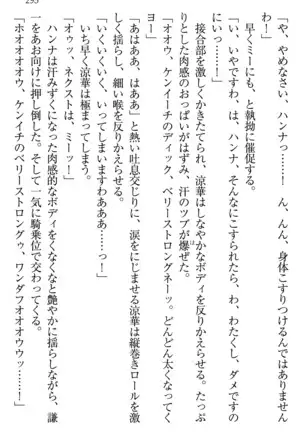 295
「や、やめなさい、ハンナっ…‥！　ん、んん、身体こすりつけるんではありません
が」
　早くミーにも、と執拗に催促する。
「い、いやですわ、は、ハンナ、そんなにこすられたら、わ、わたくし、ダメですの
にぃっ」
　接合部を激しくかきたてられ、涼華はしなやかなボディを反りかえらせる。たっぷ
りとした肉感のおっぱいがはずみ、汗のツブが爆ぜた。
「オウ、ケンイーチのディック、ベリーストロングネーッ。どんどん太くなってく
ヨー」
「あはああ、はああ」と熱い吐息交じりに、涙をにじませる涼華は縦巻きロールを激
しく揺らし、細い喉を反りかえらせる。
「いくいくいく、いってしまいますわあああ……っ」
　いち早く涼華は極まってしまう。
「オゥッ、ネクストは、ミーッ！」
　ハンナは汗みずくになった肉感的なボディをくなくなと艶やかに揺らしながら、謙
一をあお向けに押し倒した。そして一気に騎乗位で交わってくる。
「ホオオオオウ、ケンイチのベリーストロングゥ、ワンダフオオオウウッ……！」